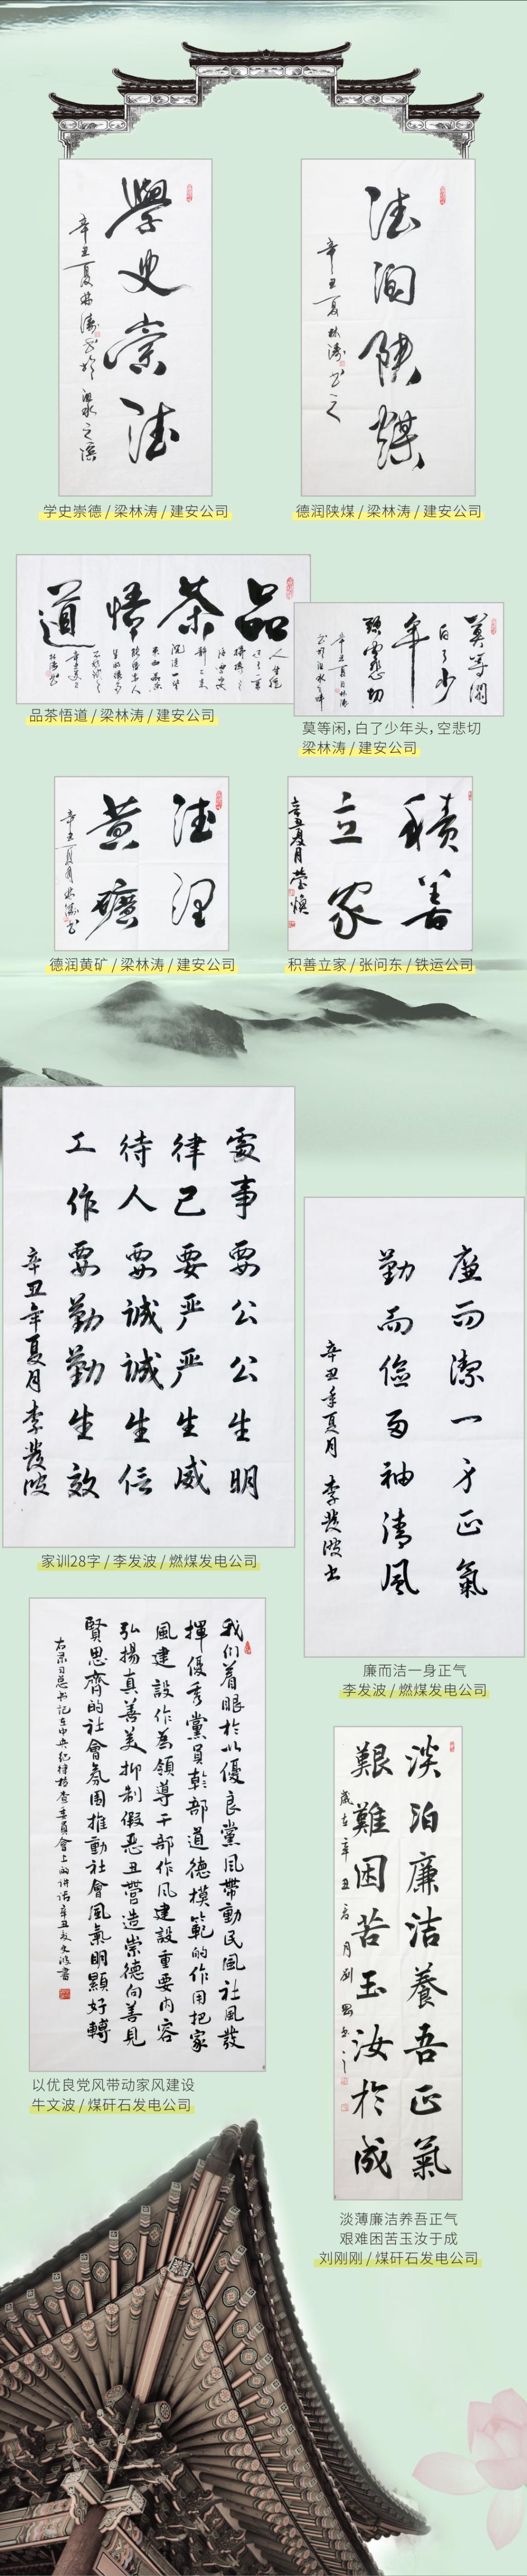 學史崇德
辛丑夏林涛书於沮水之滨
学史崇德 / 梁林涛 / 建安公司
德润陕煤
辛丑夏林涛书之
德润陕煤 / 梁林涛 / 建安公司
品茶悟道
品茶悟道 / 梁林涛 / 建安公司
莫等闲
白了少
年
頭空悲切
莫等闲，白了少年头，空悲切
梁林涛 / 建安公司
德润
黄礦
辛丑夏月林涛书
德润黄矿 / 梁林涛 / 建安公司
積善
立家
辛丑夏月
积善立家 / 张问东 / 铁运公司
處事要公公生明
律己要严严生威
待人要诚诚生信
工作要勤勤生效
辛丑年夏月李發波
家训28字 / 李发波 / 燃煤发电公司
廉而潔一身正氣
勤而儉兩袖清風
辛丑年夏月 李發波书
廉而洁一身正气
李发波 / 燃煤发电公司
我们着眼於以優良黨風帶動民風社風發
揮優秀黨員幹部道德模範的作用把家
風建設作為領導干部作风建設重要内容
弘揚真善美抑制假恶丑營造崇德向善見
賢思齊的社會氛围推動社會風氣明顯好轉
以优良党风带动家风建设
牛文波 / 煤矸石发电公司
淡泊廉洁養吾正氣
艱難困苦玉汝於成
淡薄廉洁养吾正气
艰难困苦玉汝于成
刘刚刚 / 煤矸石发电公司